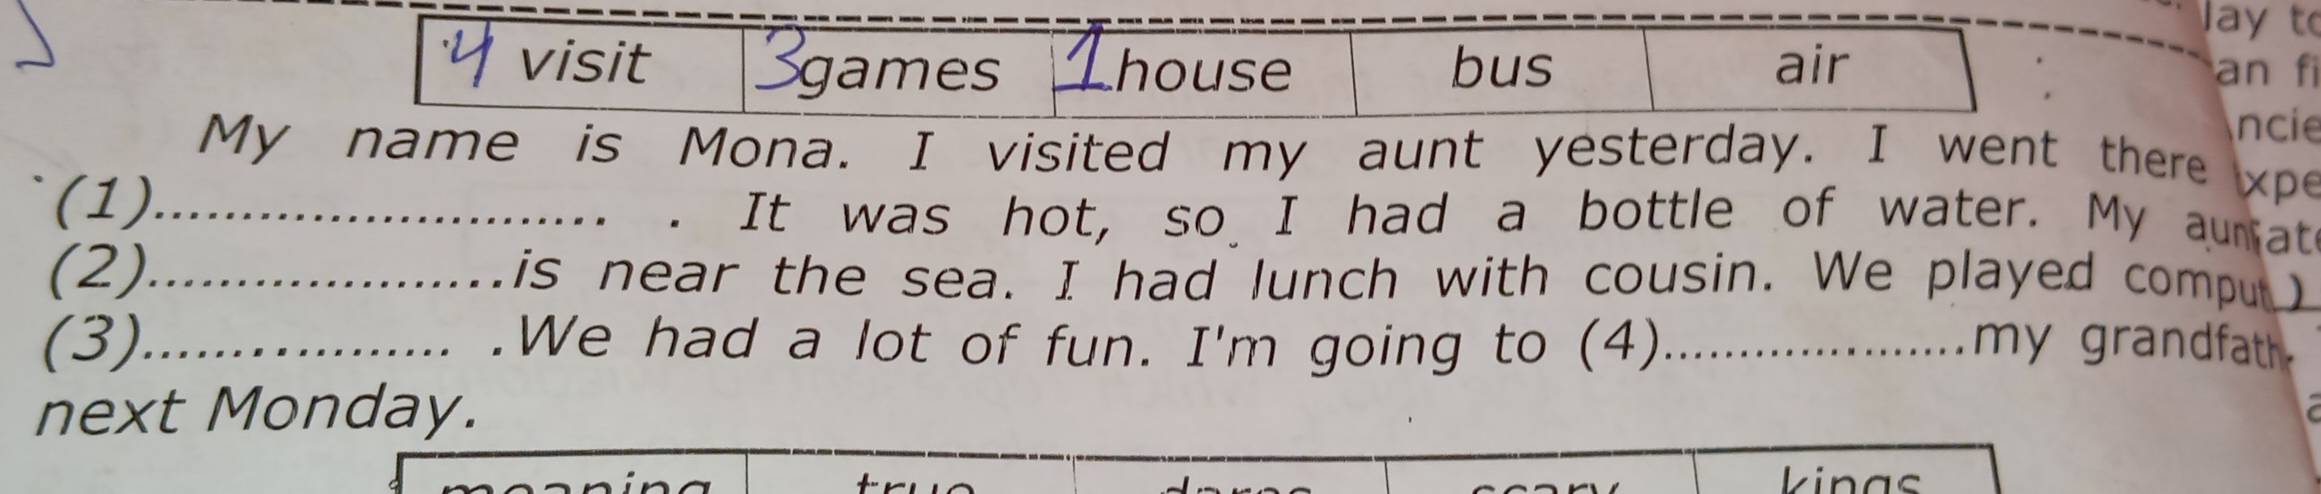 lay to
4 visit 3 games 1 house bus air
an fi
My name is Mona. I visited my aunt yesterday. I went there
(1)............................ . It was hot, so I had a bottle of water. My aunt
(2).....................is near the sea. I had lunch with cousin. We played comput
(3).................. .We had a lot of fun. I'm going to (4)....................my grandfath
next Monday.
meaning true scary kings